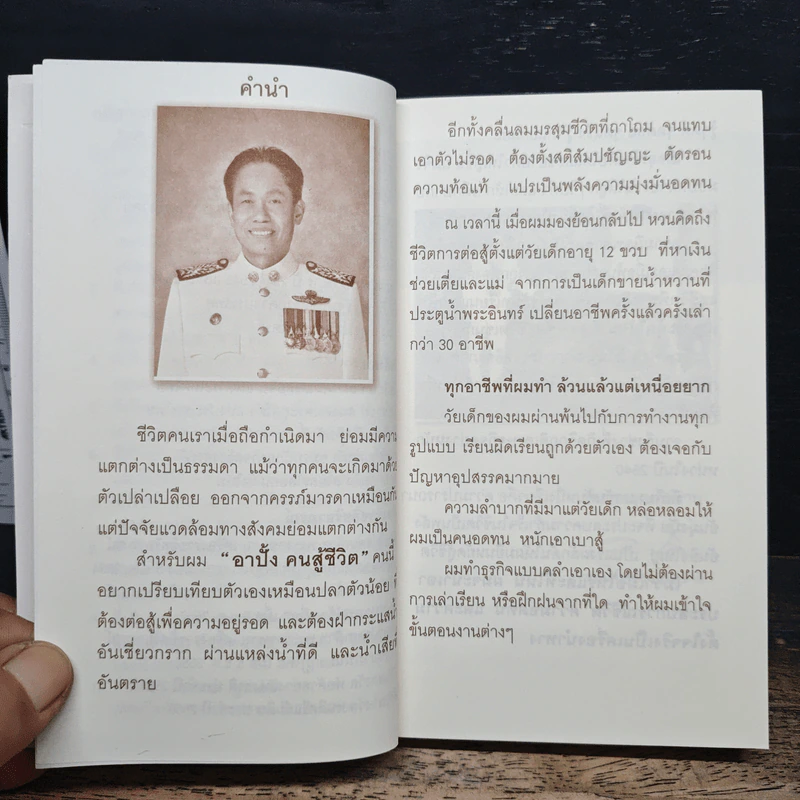 คำนำ
ชีวิตคนเราเมื่อถือกำเนิดมา ย่อมมีความ
แตกต่างเป็นธรรมดา แม้ว่าทุกคนจะเกิดมาด้วย
ตัวเปล่าเปลือย ออกจากครรภ์มารดาเหมือนกัน
แต่ปัจจัยแวดล้อมทางสังคมย่อมแตกต่างกัน
สำหรับผม “อาปั้ง คนสู้ชีวิต” คนนี้
อยากเปรียบเทียบตัวเองเหมือนปลาตัวน้อย
ต้องต่อสู้เพื่อความอยู่รอด และต้องฝ่ากระแสน้ำ
อันเชี่ยวกราก ผ่านแหล่งน้ำที่ดี และน้ำเสีย
อันตราย
อีกทั้งคลื่นลมมรสุมชีวิตที่ถาโถม จนแทบ
เอาตัวไม่รอด ต้องตั้งสติสัมปชัญญะ ตัดรอน
ความท้อแท้ แปรเป็นพลังความมุ่งมั่นอดทน
ณ เวลานี้ เมื่อผมมองย้อนกลับไป หวนคิดถึง
ชีวิตการต่อสู้ตั้งแต่วัยเด็กอายุ 12 ขวบ ที่หาเงิน
ช่วยเตี่ยและแม่ จากการเป็นเด็กขายน้ำหวานที่
ประตูน้ำพระอินทร์ เปลี่ยนอาชีพครั้งแล้วครั้งเล่า
กว่า 30 อาชีพ
ทุกอาชีพที่ผมทำ ล้วนแล้วแต่เหนื่อยยาก
วัยเด็กของผมผ่านพ้นไปกับการทำงานทุก
รูปแบบ เรียนผิดเรียนถูกด้วยตัวเอง ต้องเจอกับ
ปัญหาอุปสรรคมากมาย
ความลำบากที่มีมาแต่วัยเด็ก หล่อหลอมให้
ผมเป็นคนอดทน หนักเอาเบาสู้
ผมทำธุรกิจแบบคลำเอาเอง โดยไม่ต้องผ่าน
การเล่าเรียน หรือฝึกฝนจากที่ใด ทำให้ผมเข้าใจ
ขั้นตอนงานต่างๆ